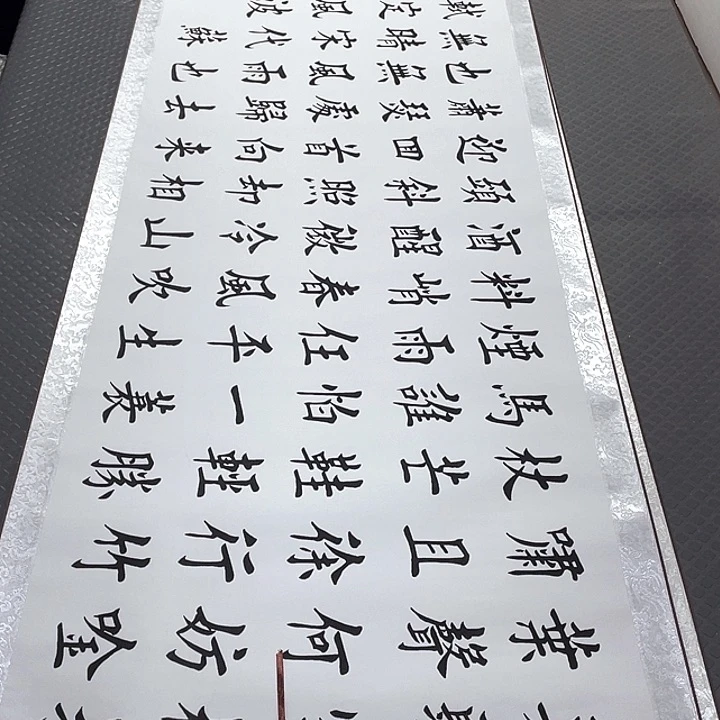 葉聲何妨吟
嘯且徐行竹
杖芒鞋輕勝
馬誰怕一蓑
煙雨任平生
料峭春風吹
酒醒微冷山
頭斜照却相
迎回首向來
蕭瑟處歸去
也無風雨也
無晴宋代蘇
軾定風波